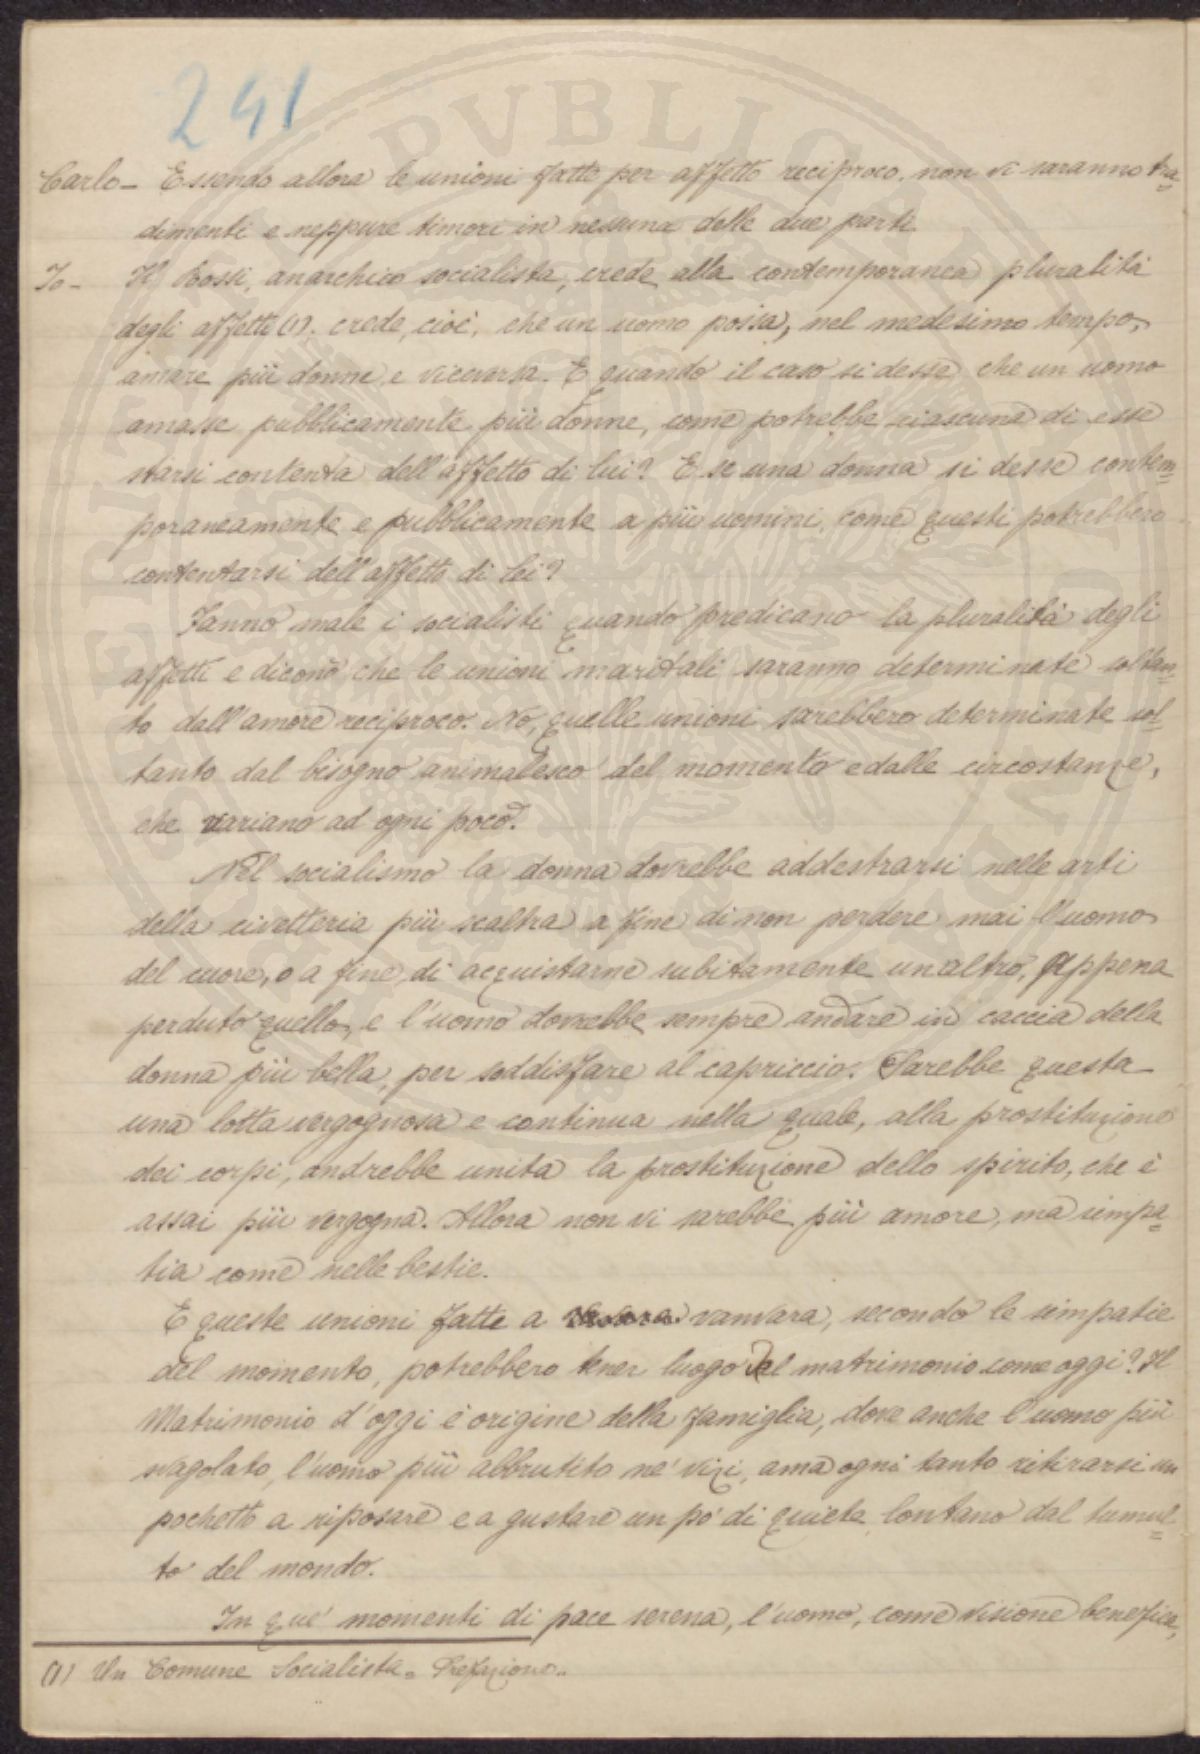 241
Carlo - Essendo allora le unioni fatte per affetto reciproco, non vi saranno tra=
dimenti e neppure timori in nessuna delle due parti.
Io - Il Rossi, anarchico socialista, crede alla contemporanea pluralità
degli affetti (1), crede, cioè, che un uomo possa, nel medesimo tempo,
amare più donne, e viceversa. E quando il caso si desse che un uomo
amasse pubblicamente più donne, come potrebbe ciascuna di esse
starsi contenta dell'affetto di lui? E se una donna si desse contem=
poraneamente e pubblicamente a più uomini, come questi potrebbero
contentarsi dell'affetto di lei?
Fanno male i socialisti quando predicano la pluralità degli
affetti e dicono che le unioni maritali saranno determinate soltan=
to dall'amore reciproco. No, quelle unioni sarebbero determinate sol=
tanto dal bisogno animalesco del momento e dalle circostanze,
che variano ad ogni poco.
Nel socialismo la donna dovrebbe addestrarsi nelle arti
della civetteria più scaltra a fine di non perdere mai l'uomo
del cuore, o a fine di acquistarne subitamente un altro, appena
perduto quello, e l'uomo dovrebbe sempre andare in caccia della
donna più bella, per soddisfare al capriccio. Sarebbe questa
una lotta vergognosa e continua nella quale, alla prostituzione
dei corpi, andrebbe unita la prostituzione dello spirito, che è
assai più vergogna. Allora non vi sarebbe più amore, ma simpa=
tia come nelle bestie.
E queste unioni fatte a vanvara, secondo le simpatie
del momento, potrebbero tener luogo del matrimonio come oggi? Il
Matrimonio d'oggi è origine della famiglia, dove anche l'uomo più
svagolato, l'uomo più abbrutito ne' vizi, ama ogni tanto ritirarsi un
pochetto a riposare e a gustare un po' di quiete lontano dal tumul=
to del mondo.
In que' momenti di pace serena, l'uomo, come visione benefica,
(1) Un Comune Socialista = Prefazione..